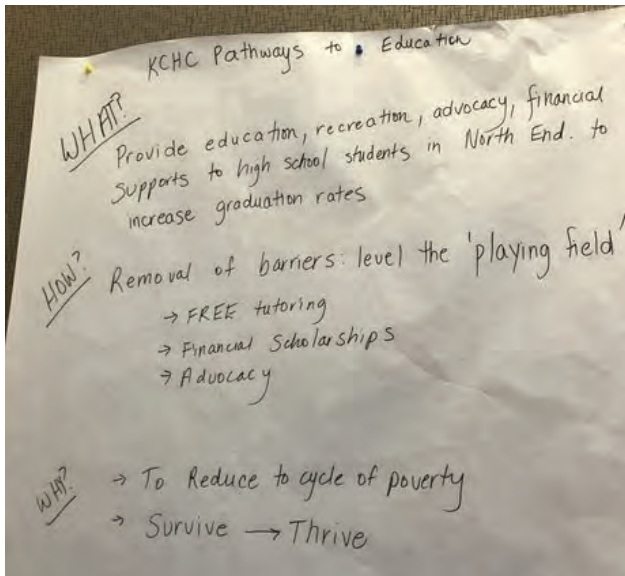 KCHC Pathways to Education
WHAT?
Provide education, recreation, advocacy, financial
supports to high school students in North End. to
increase graduation rates
HOW?
Removal of barriers: level the 'playing field'
→ FREE tutoring
→ Financial Scholarships
→ Advocacy
WHY?
→ To Reduce to cycle of poverty
→ Survive → Thrive